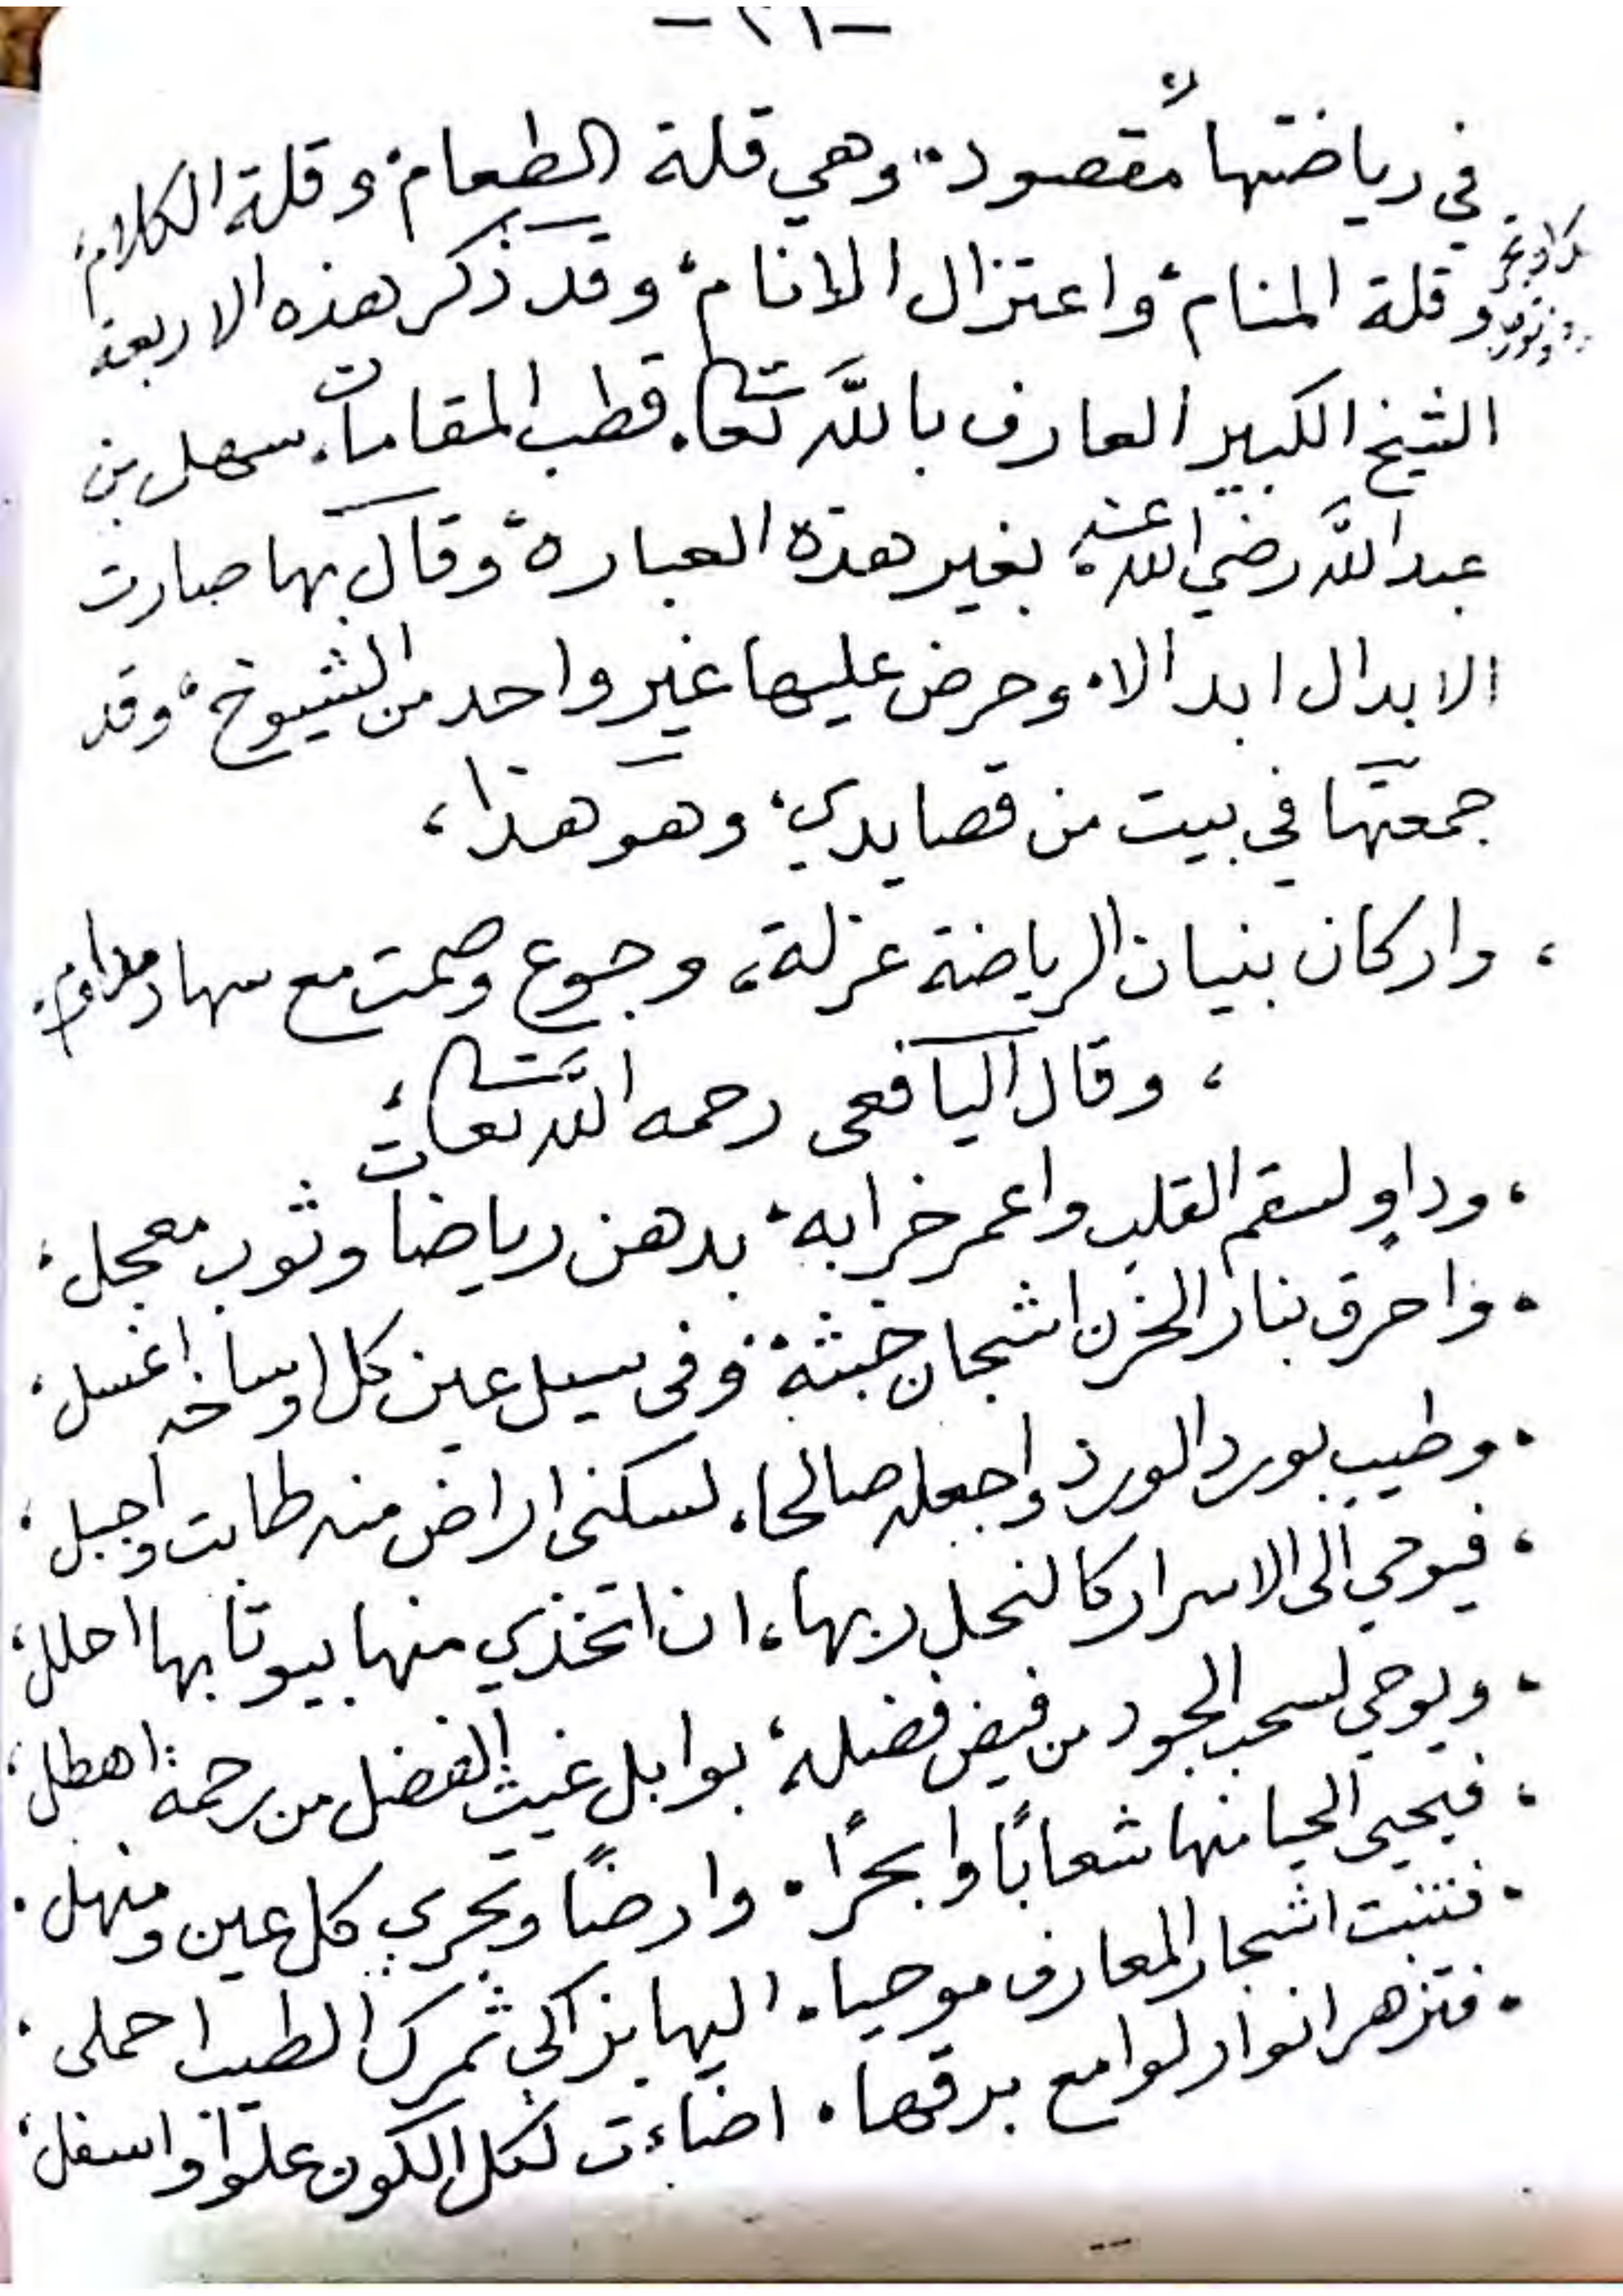 في رياضتها مقصود، وهي قلة الطعام، وقلة الكلام،
وقلة المنام، واعتزال الانام، وقد ذكر هذه الاربعة
الشيخ الكبير العارف باللّه تعا، قطب المقامات، سهل بن
عبد اللّه رضي الله عنه، بغير هذه العبارة، وقال بها صارت
الابدال ابدالا، وحرض عليها غير واحد من الشيوخ، وقد
جمعتها في بيت من قصايدي، وهو هذا،
، واركان بنيان الرياضة عزلة، وجوع وصمت مع سهاد مداوم،
، وقال اليافعى رحمه اللّه تعا،
، وداوٍ لسقم القلب واعمر خرابه، بدهن رياضات وثوب معجل،
، واحرق بنار الحزن اشجان خبثة، وفى سيل عين كل اوساخه اغسل،
، وطيب بورد الورد واجعله صالحا، لسكنى اراض منه طابت واجبل،
، فيوحي الى الاسرار كالنحل ربها، ان اتخذي منها بيوتا بها احلل،
، ويوحي لسحب الجود من فيض فضله، بوابل غيث الفضل من رحمة اهطل،
، فيحيى الحيا منها شعابًا وابحرًا، وارضًا وتجري كل عين ومنهل،
، فتنبت اشجار المعارف موحيا، اليها بزاكي ثمرك الطيب احملى،
، فتزهر انوار لوامع برقها، اضاءت لكل الكون علوا واسفل،